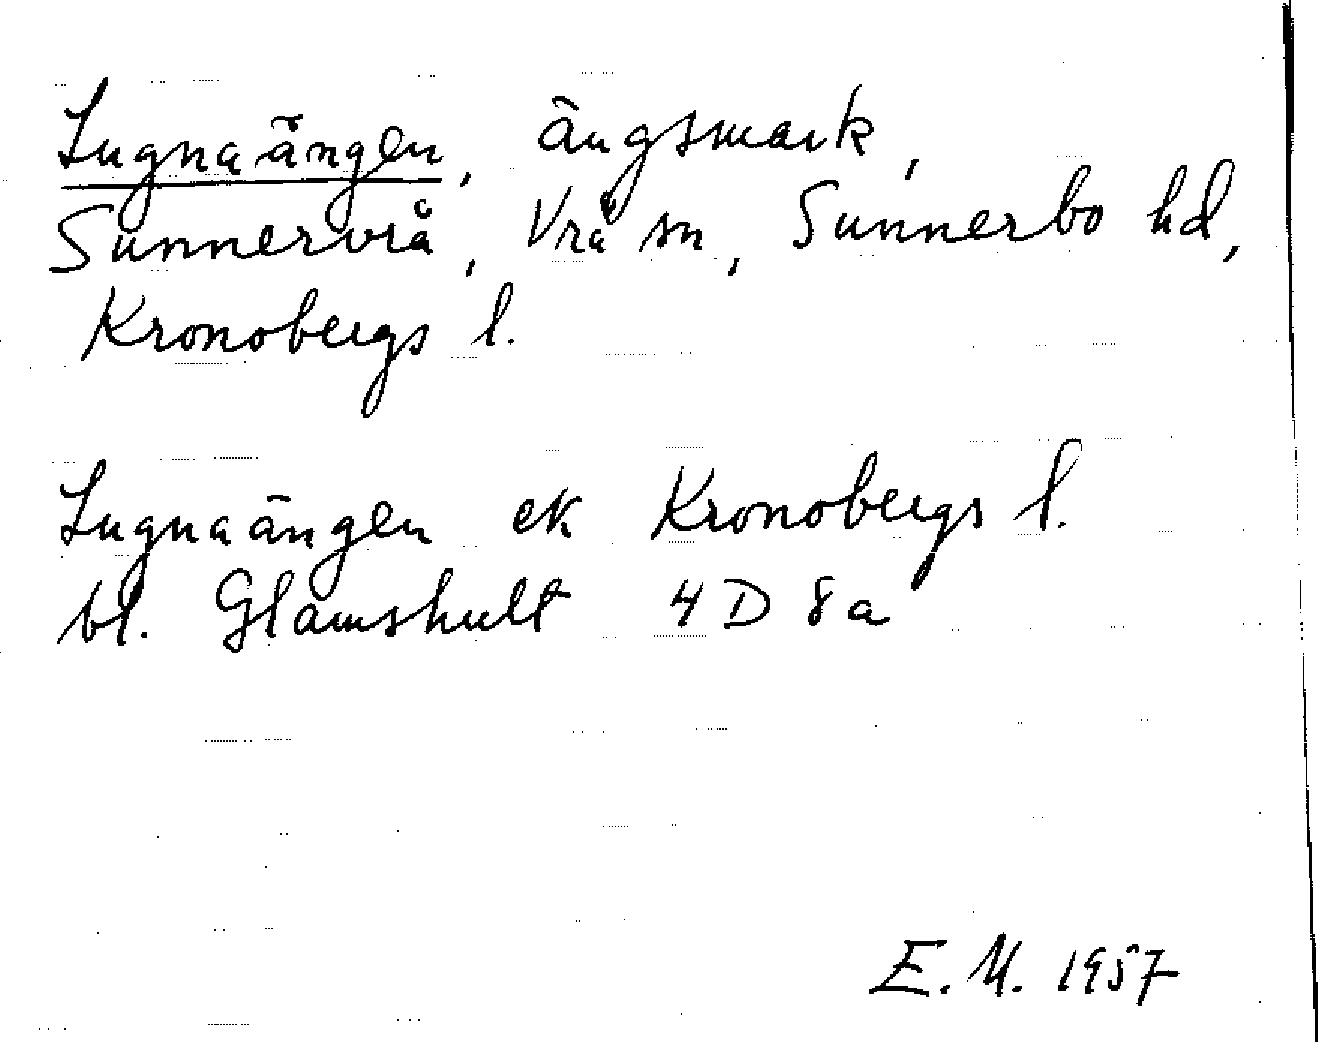 Lugnaängen, ängsmark,
Sunnervrå, Vrå sn, Sunnerbo hd,
Kronobergs l.
Lugnaängen ek Kronobergs l.
bl. Glamshult 4 D 8 a
E. M. 1957